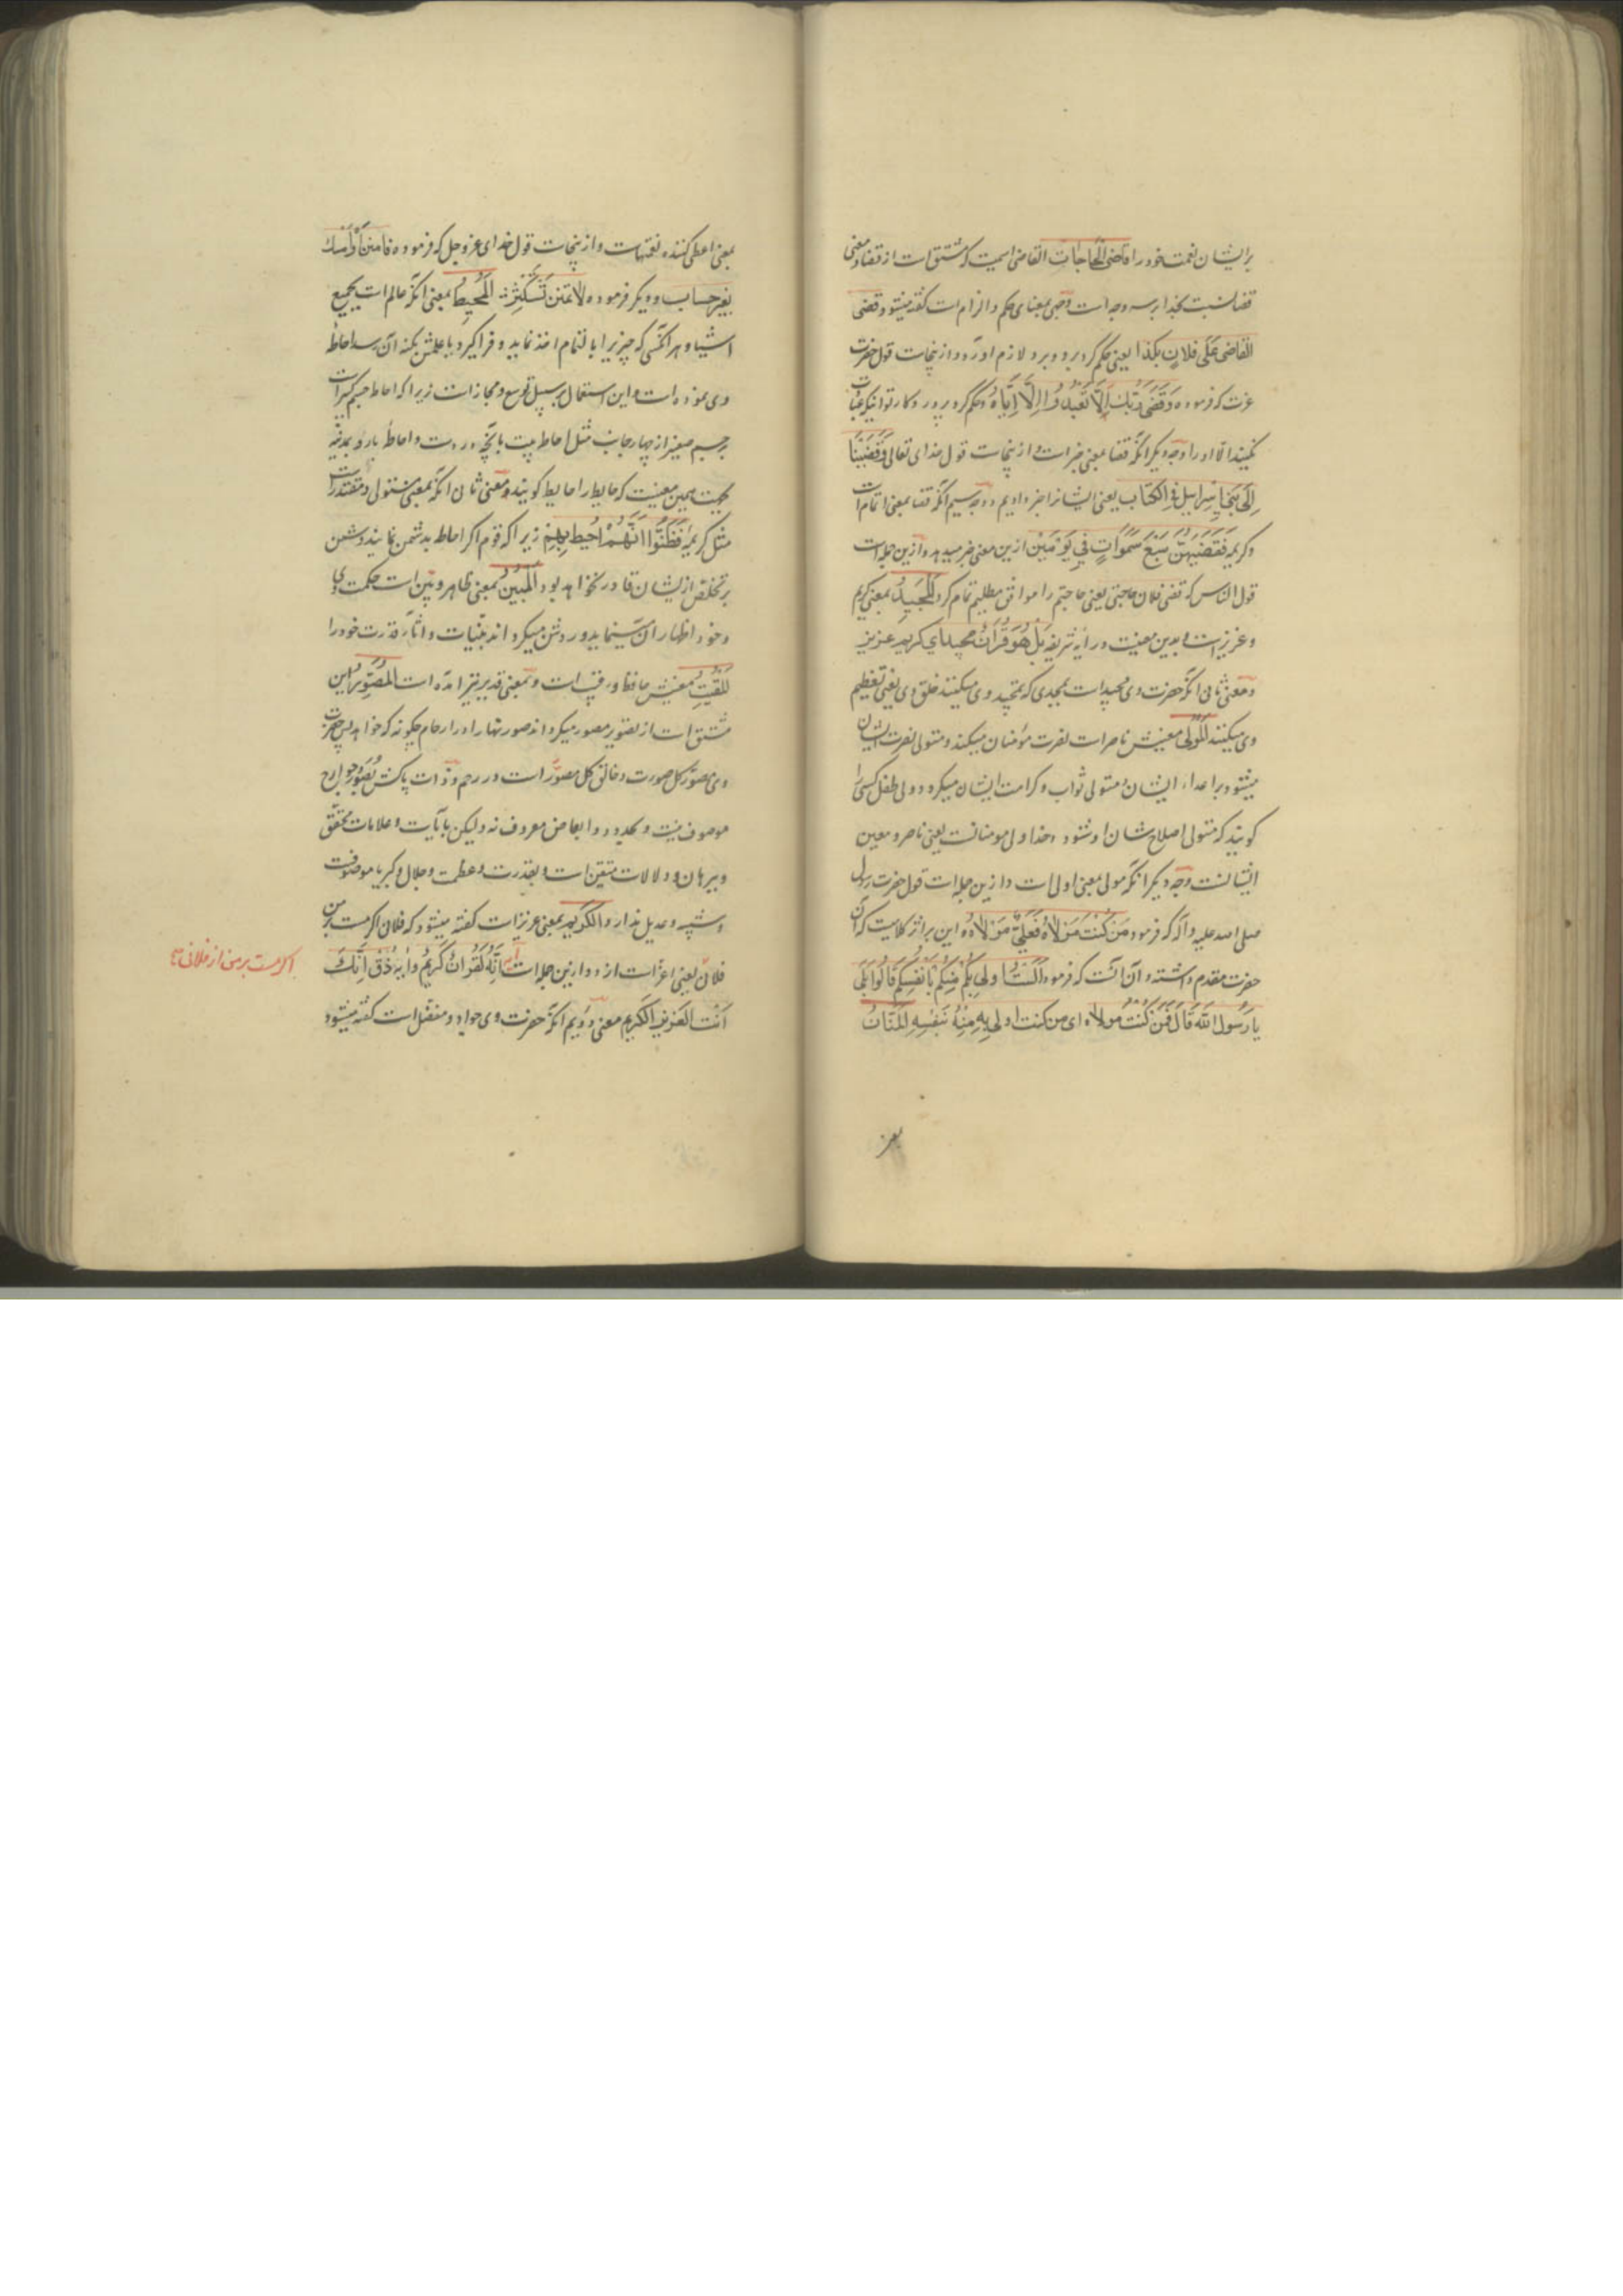 برایشان نعمت خود را قاضی الحاجات القاضی اسمیست که مشتق است از قضا و معنی
قضا نسبت بخدا بر سه وجه است وجهی بمعنای حکم و الزام است گفته میشود قضی
القاضی عَلَی فلانٍ بکذا یعنی حکم کرد برو و برو لازم آورد و ازینجاست قول حضرت
عزت که فرموده وَقَضَی رَبُّكَ اَلَّا تَعْبُدُوا اِلَّا اِیَّاهُ و حکم کرد پروردکار تو اینکه عبادت
نکنید الّا او را وجه دیکر آنکه قضا بمعنی خبر است و ازینجاست قول خدای تعالی وَقَضَیْنَا
اِلَی بَنِی اِسرَاییل فِی الکِتَاب یعنی ایشانرا خبر دادیم و وجه سیم آنکه قضا بمعنی اتمام است
و کریمه فَقَضَیهُنَّ سَبْعَ سَمٰوَاتٍ فِی یَوْمَیْن ازین معنی خبر میدهد و ازین جمله است
قول الناس که قضی فلان حاجتی یعنی حاجتم را موافق مطلبم تمام کرد اَلْمَجِیدُ بمعنی کریم
و عزیز است و بدین معنیست در آیه شریفه بَلْ هُوَ قُرْاٰنٌ مجید ای کریم عزیز
و معنی ثانی آنکه حضرت وی مجید است بمجدی که تمجید وی میکنند خلق وی یعنی تعظیم
وی میکنند اَلْمَوْلَی معنیش ناصر است نصرت مؤمنان میکند و متولی نصرت ایشان
میشود بر اعداء ایشان و متولی ثواب و کرامت ایشان میکردد و ولی طفل کسی را
کویند که متولی اصلاح شان او شود و خدا ولی مومنانست یعنی ناصر و معین
ایشانست وجه دیکر آنکه مولی بمعنی اولی است و ازین جمله است قول حضرت رسول
صلی الله علیه و آله که فرمود مَنْ کُنْتُ مَوْلَاهُ فَعَلِیٌّ مَوْلَاهُ و این بر اثر کلامیست که آن
حضرت مقدم داشته و آن آنست که فرمود اَلَسْتُ اولی بِکُم مِنکُم بِاَنْفُسِکُم قَالُوا بَلَی
یا رَسُولَ اللّٰهِ قَالَ فَمَنْ کُنْتُ مَولاه ای من کنت اولی بِهِ مِنْهُ بنَفْسِهِ اَلْمَنَّانُ
بمعنی اعطی کننده نعمتهاست و ازینجاست قول خدای عزوجل که فرموده فَامْنُنْ اَوْ اَمْسِكْ
بِغَیرِ حِسَاب و دیکر فرموده لَا تَمْنُنْ تَسْتَکْثِرُ اَلْمُحِیطُ بمعنی آنکه عالم است بجمیع
اشیا و هر آنکسی که چیزیرا بالتمام اخذ نماید و فراکیرد یا علمش بکنه آن رسد احاطه
وی نموده است و این استعمال بر سبیل توسع و مجاز است زیرا که احاطه جسم کبیر است
بر جسم صغیر از چهار جانب مثل احاطه بیت بآنچه دروست و احاطه بارو بمدینه
بجهت همین معنیست که حایط را حایط کویند و معنی ثانی آنکه بمعنی مستولی و مقتدر است
مثل کریمه فَظَنُّوا اَنَّهُمْ اُحِیطَ بِهِمْ زیرا که قوم اکر احاطه بدشمن نمایند دشمن
بر تخلص از ایشان قادر نخواهد بود اَلْمُبِینُ بمعنی ظاهر و بَیِّن است حکمت وی
و خود اظهار آن مینماید و روشن میکرداند ببینات و آثار قدرت خود را
اَلْمُقِیتُ معنیش حافظ و رقیب است و بمعنی قدیر نیز آمده است اَلْمُصَوِّرُ این
مشتق است از تصویر مصور میکرداند صورتها را در ارحام چکونه که خواهد پس حضرت
وی مصوّر کل صورت و خالق کل مصوّر است در رحم و ذات پاکش بصور و جوارح
موصوف نیست و بحدود و ابعاض معروف نه ولیکن بآیات و علامات محقق
و ببرهان و دلالات متیقن است و بقدرت و عظمت و جلال و کبریا موصوفست
و شبیه و عدیل ندارد الکَرِیم بمعنی عزیز است کفته میشود که فلان اکرمست بر من
فلان یعنی اعز است ازو و ازین جمله است آیه اِنَّهُ لَقُرْاٰنٌ کَرِیمٌ وایه ذُقْ اِنَّكَ
اَنْتَ العَزِیزُ الکَرِیم معنی دویم آنکه حضرت وی جواد و متفضل است کفته میشود
اکرمست بر من از فلانی